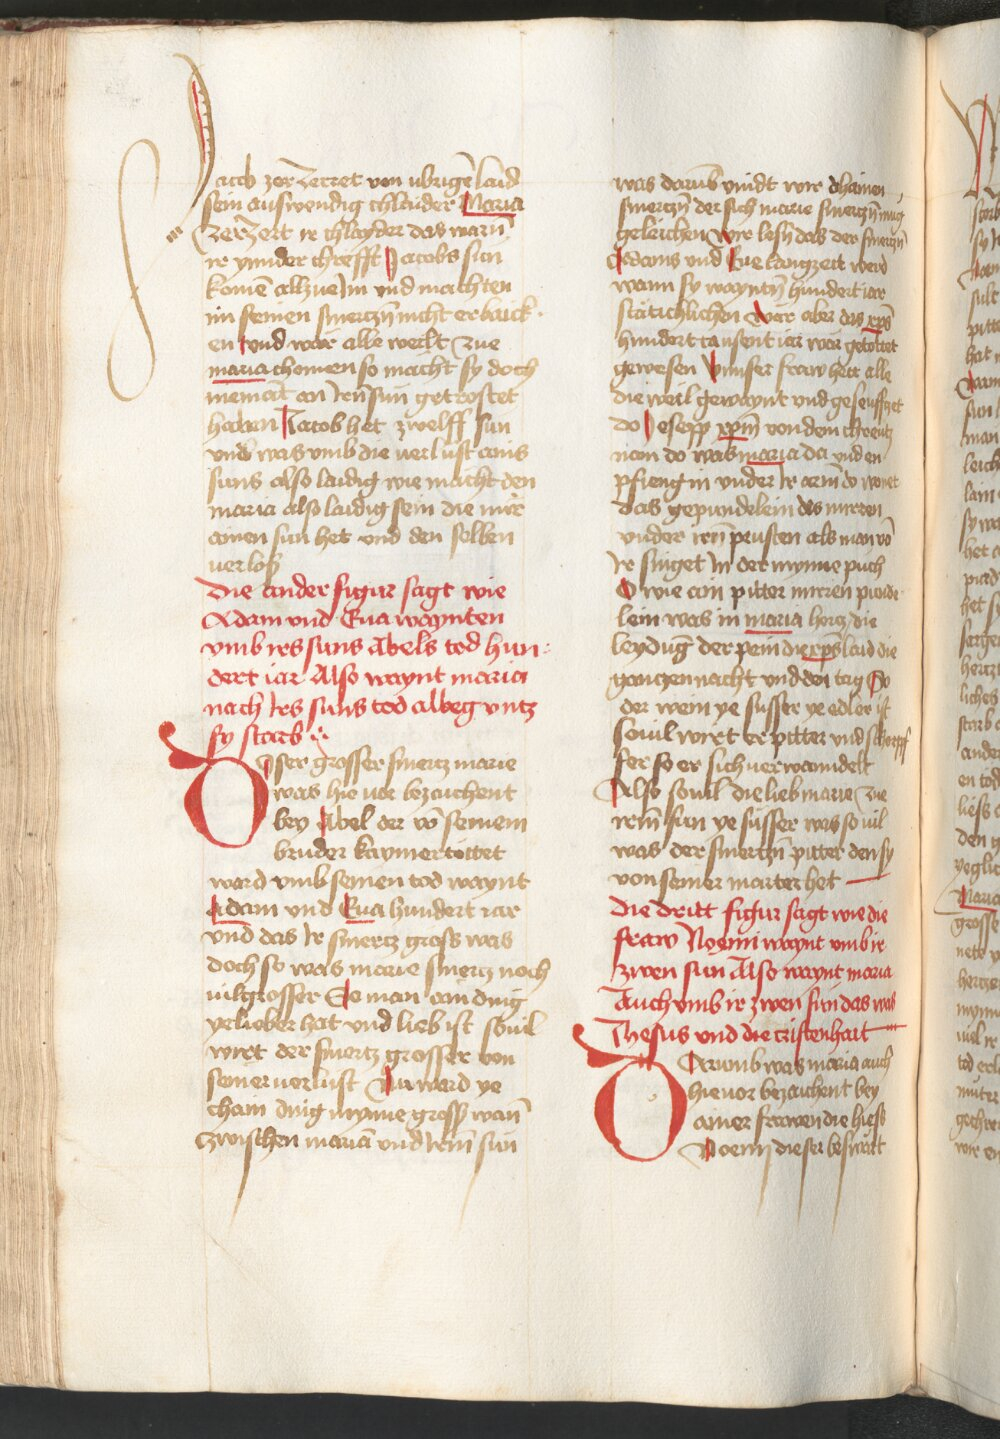 Jacob zerzerret von ubrigē laid
sein auswendig chlaider Maria
zerzert ir chlayder das warn̄
ir ynnder chrefft Jacobs sun
komē all zue Im vnd machten
im seinen smertzn̄ nicht erbaick
en vnd war alle welt zue
maria chomen so macht sy doch
niemāt an Irn̄ sun getrostet
haben Jacob het zwelff sun
vnd was vmb die verlust ains
suns also laidig wie macht den
maria also laidig sein die nur
ainen sun het vnd den selben
verlos
Die ander figur sagt wie
Adam vnd Eua waynten
vmb irs suns Abels tod hun
dert iar Also waynt maria
nach Irs suns tod albeg vntz
sy starb
Diser grosser smertz marie
was hie vor bezaichent
bey Abel der vō seinem
bruder kaym ertöttet
ward vmb seinen tod waynt
Adam vnd Eua hundert iar
vnd das Ir smertz gross was
doch so was marie smertz noch
vil grosser So man ain ding
ye lieber hat vnd lieb ist souil
wirt der smertz grosser von
seiner verlust Nu ward ye
chain ding mynne grosser wan̄
zwischen mariā vnd Irm̄ sun
was darūb vindt wir chainen
smertzn̄ der sich marie smertzn̄ mug
geleichen wir lesn̄ das der smertzn̄
Adams vnd Eue langzeit werd
wann sy wayntn̄ hundert iar
stätichlichen wär aber das xp̄s
hundert tausent iar wär getöttet
gewesen Vnnser fraw hett alle
die weil gewaynt vnd geseufftzet
do Joseph xp̄m̄ von dem chreutz
nam do was maria da vnd en
pfieng in vnder Ir arm̄ do wonet
das gepundelein des mirren
vnder irn̄ prusten als man vō
Ir singet In der mynne puch
O wie ain pitter mirren pürde
lein was in maria hertz die
leydūg der pein die xp̄s laid die
gantzen nacht vnd den tag So
der wein ye susser ye edler ist
souil wirt er pitter vnd scherpf
fer so er sich verwanndelt
Also souil die lieb marie zue
irm̄ sun ye süsser was so uil
was der smertzn̄ pitter den sy
von seiner marter het
Die dritt figur sagt wie die
fraw Noemi waynt vmb ir
zwen sun Also waynt maria
Auch vmb ir zwen sun das was
Jhesus vnd die cristenhait
Darumb was maria auch
hie vor bezaichent bey
ainer frawen die hiess
Noemi dieser beswart